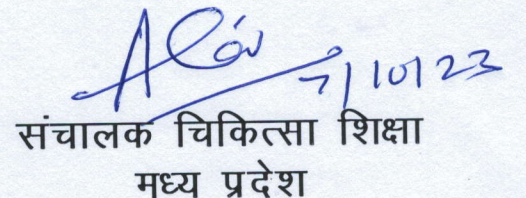 7/10/23
संचालक चिकित्सा शिक्षा
मध्य प्रदेश